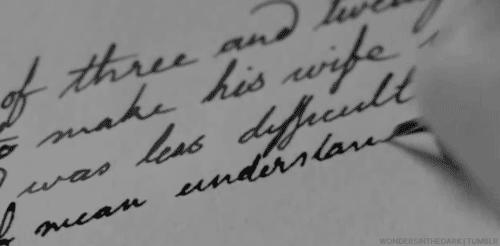 of three and twenty
make his wife
was less difficult
mean understan
WONDERSINTHEDARK | TUMBLR